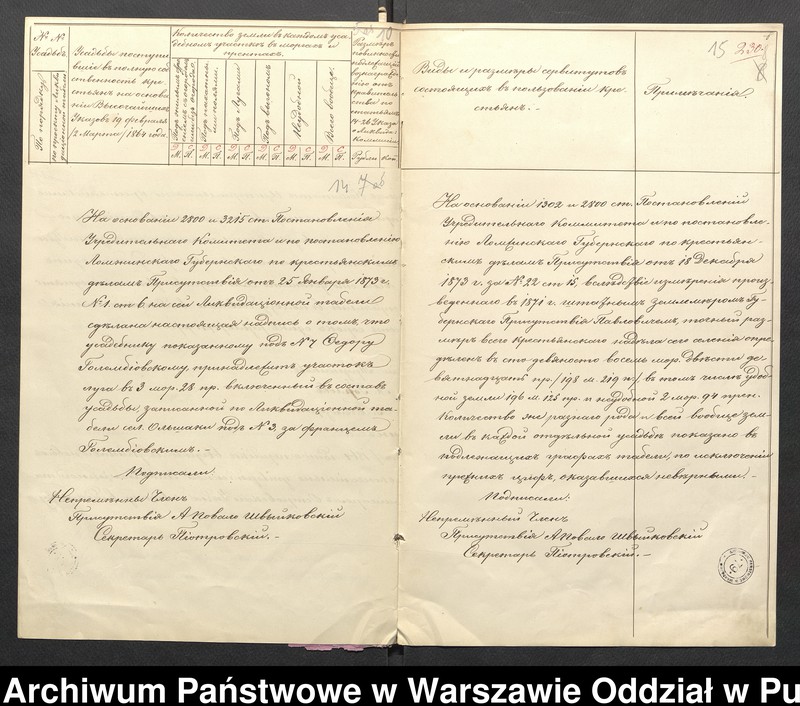 № №
Усадьбъ.
По порядку
Усадьбы поступи
вшіе въ полную со
бственность кре
стьянъ на основа
ніи Высочайшихъ
Указовъ 19 февраля
/2 Марта/ 1864 года.
Количество земли въ каждомъ уса
дебномъ участкѣ въ моргахъ и
прентахъ.
Подъ пахатны
ми полями.
Подъ лугами
Подъ выгономъ
Неудобной
Всего вообще.
М. П. М. П. М. П. М. П. М. П. М. П.
Рубли Коп
14
На основаніи 2800 и 3215 ст. Постановленія
Учредительнаго Комитета и по постановленію
Ломжинскаго Губернскаго по крестьянскимъ
дѣламъ Присутствія отъ 25 Января 1873 г.
№ 1. ст. 6 на сей Ликвидаціонной табели
сдѣлана настоящая надпись о томъ, что
усадебнику показанному подъ № 7 Федору
Голембіовскому, принадлежитъ участокъ
луга въ 3 мор. 28 пр. включенный въ составъ
усадьбы, записанной по Ликвидаціонной та-
бели сел. Ольшаки подъ № 3, за Францемъ
Голембіовскимъ.-
Подписали
Непремѣнный Членъ
Присутствія А Повало Швыйковскій
Секретарь Піотровскій.-
15 230
8
Виды и размѣры сервитутовъ
состоящихъ въ пользованіи кре-
стьянъ.-
Примѣчанія.
На основаніи 1302 и 2800 ст. Постановленій
Учредительнаго Комитета и по постановле-
нію Ломжинскаго Губернскаго по крестьян-
скимъ дѣламъ Присутствія отъ 18 Декабря
1873 г. за № 22 ст. 15, вслѣдствіе измѣренія произ-
веденнаго въ 1871 г. штатнымъ землемѣромъ Гу-
бернскаго Присутствія Павловичемъ, точный раз-
мѣръ всего крестьянскаго надѣла сего селенія опре-
дѣленъ въ сто девяносто восемь мор. двѣсти де-
вятнадцать пр. /198 м. 219 п/ въ томъ числѣ удоб-
ной земли 196 м. 125 пр. и неудобной 2 мор. 94 прен.
Количество же разнаго рода и всей вообще зем-
ли въ каждой отдѣльной усадьбѣ показано въ
подлежащихъ графахъ табели, по исключеніи
прежнихъ цифръ, оказавшихся невѣрными.-
Подписали:
Непремѣнный Членъ
Присутствія А Повало Швыйковскій
Секретарь Піотровскій.-
Archiwum Państwowe w Warszawie Oddział w Pu